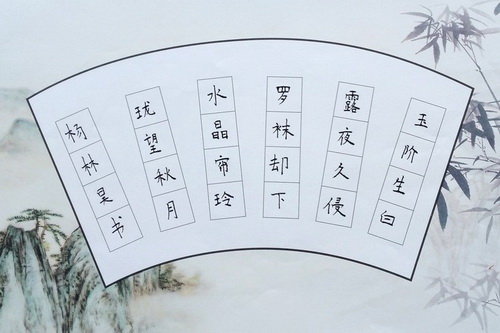 玉阶生白
露夜久侵
罗袜却下
水晶帘玲
珑望秋月
杨林昊书